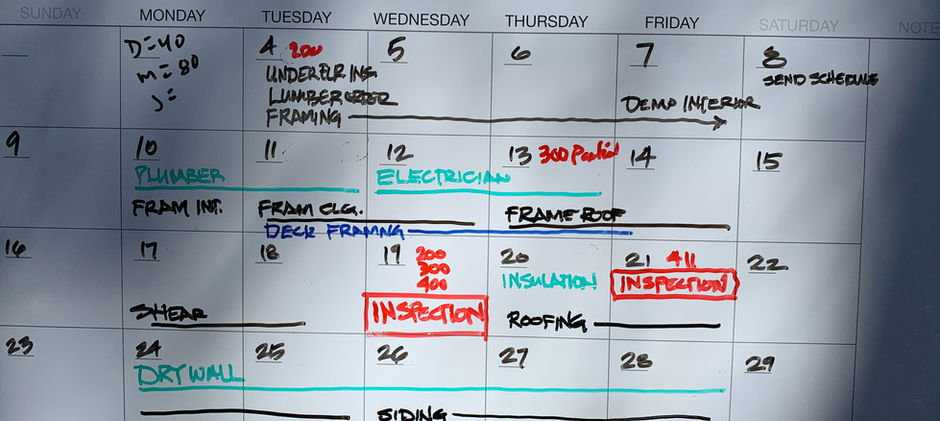 SUNDAY MONDAY TUESDAY WEDNESDAY THURSDAY FRIDAY SATURDAY NOTE
D=40
m=80
J=
4 200
UNDERFLR ING.
LUMBER ORDER
FRAMING
5
6
7
DEMO INTERIOR
8
SEND SCHEDULE
9
10
PLUMBER
FRAM INT.
11
FRAM CLG.
DECK FRAMNG
12
ELECTRICIAN
13 300 Partial
FRAME ROOF
14
15
16
17
SHEAR
18
19 200
300
400
INSPECTION
20
INSULATION
ROOFING
21 411
INSPECTION
22
23
24
DRYWALL
25
26
SIDING
27
28
29